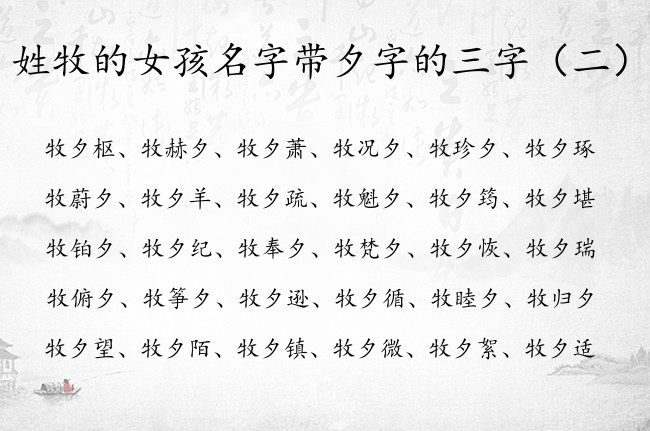 姓牧的女孩名字带夕字的三字（二）
牧夕枢、牧赫夕、牧夕萧、牧况夕、牧珍夕、牧夕琢
牧蔚夕、牧夕羊、牧夕疏、牧魁夕、牧夕筠、牧夕堪
牧铂夕、牧夕纪、牧奉夕、牧梵夕、牧夕恢、牧夕瑞
牧俯夕、牧筝夕、牧夕逊、牧夕循、牧睦夕、牧归夕
牧夕望、牧夕陌、牧夕镇、牧夕微、牧夕絮、牧夕适